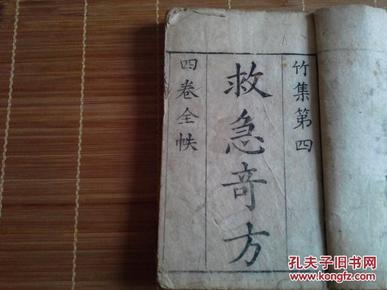 竹集第四
救急奇方
四卷全帙
孔夫子旧书网